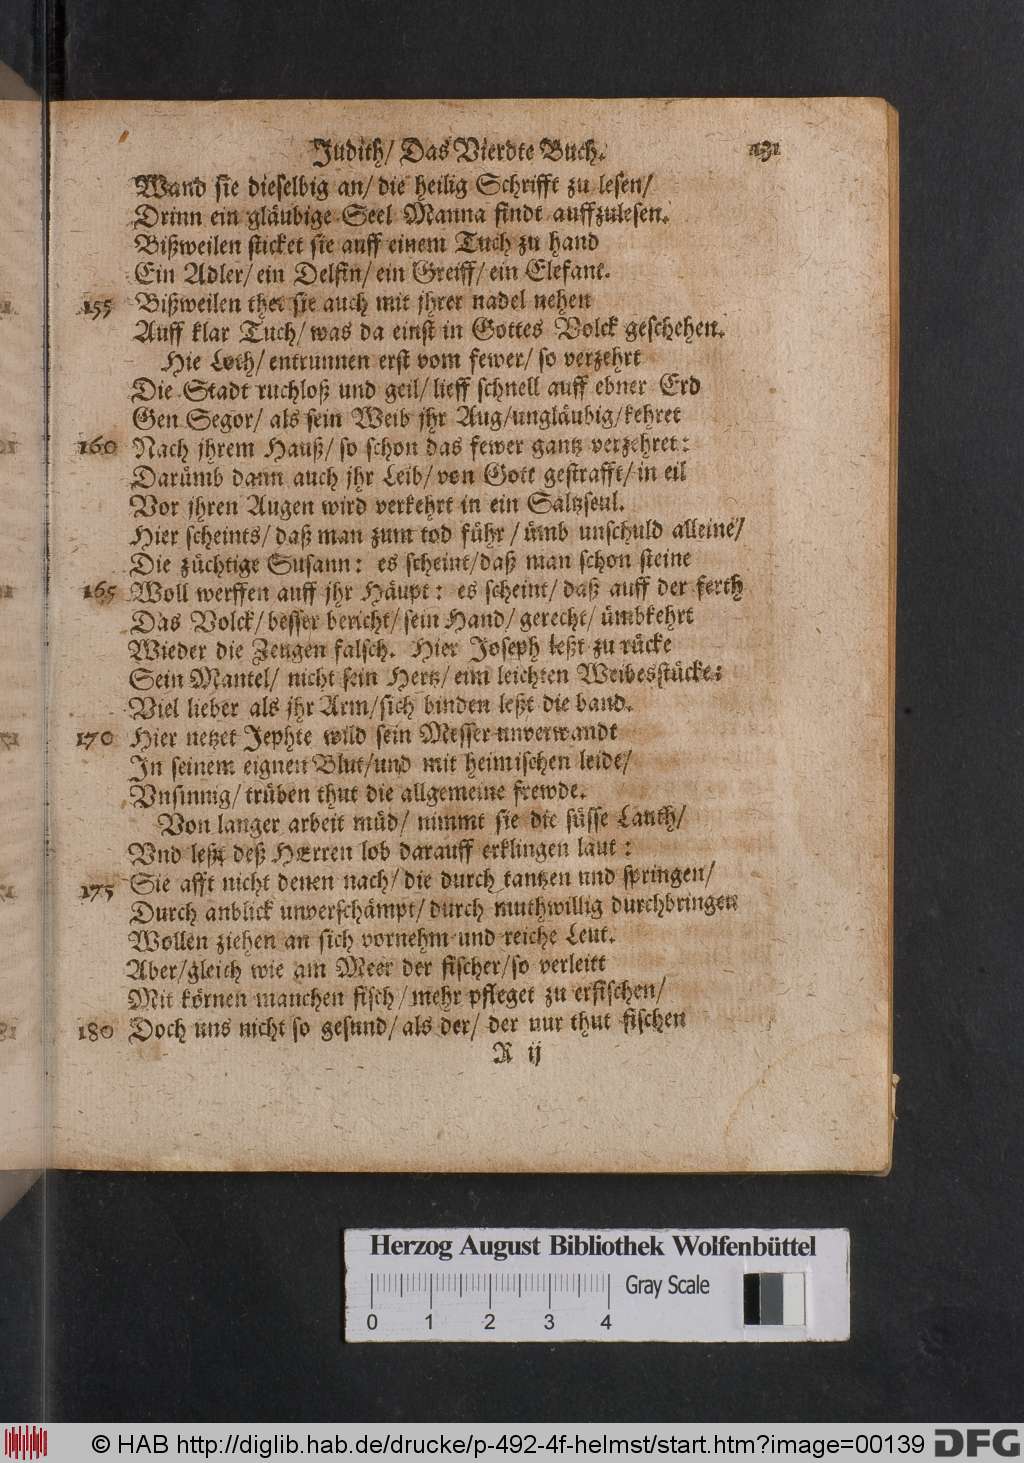 Judith/ Das Vierdte Buch. 131
Wand sie dieselbig an/ die heilig Schrifft zu lesen/
Drinn ein gläubige Seel Manna findt auffzulesen.
Bißweilen sticket sie auff einem Tuch zu hand
Ein Adler/ ein Delfin/ ein Greiff/ ein Elefant.
155 Bißweilen thet sie auch mit jhrer nadel nehen
Auff klar Tuch/ was da einst in Gottes Volck geschehen.
Hie Loth/ entrunnen erst vom fewer/ so verzehrt
Die Stadt ruchloß und geil/ lieff schnell auff ebner Erd
Gen Segor/ als sein Weib jhr Aug/ungläubig/kehret
160 Nach jhrem Hauß/ so schon das fewer gantz verzehret:
Darümb dann auch jhr Leib/ von Gott gestrafft/ in eil
Vor jhren Augen wird verkehrt in ein Saltzseul.
Hier scheints/ daß man zum tod führ/ ümb unschuld alleine/
Die züchtige Susann: es scheint/daß man schon steine
165 Woll werffen auff jhr Häupt: es scheint/ daß auff der ferth
Das Volck/ besser bericht/ sein Hand/ gerecht/ ümbkehrt
Wieder die Zeugen falsch. Hier Joseph leßt zu rücke
Sein Mantel/ nicht sein Hertz/ eim leichten Weibesstücke:
Viel lieber als jhr Arm/sich binden leßt die band.
170 Hier netzet Jephte wild sein Messer unverwandt
In seinem eignen Blut/und mit heimischen leide/
Vnsinnig/ trüben thut die allgemeine frewde.
Von langer arbeit müd/ nimmt sie die süsse Lauth/
Vnd leßt deß HErren lob darauff erklingen laut:
175 Sie afft nicht denen nach/ die durch tantzen und springen/
Durch anblick unverschämpt/ durch muthwillig durchbringen
Wollen ziehen an sich vornehm und reiche Leut.
Aber/gleich wie am Meer der fischer/so verleitt
Mit körnen manchen fisch/ mehr pfleget zu erfischen/
180 Doch uns nicht so gesund/ als der/ der nur thut fischen
R ij
Herzog August Bibliothek Wolfenbüttel
Gray Scale
0 1 2 3 4
© HAB http://diglib.hab.de/drucke/p-492-4f-helmst/start.htm?image=00139 DFG